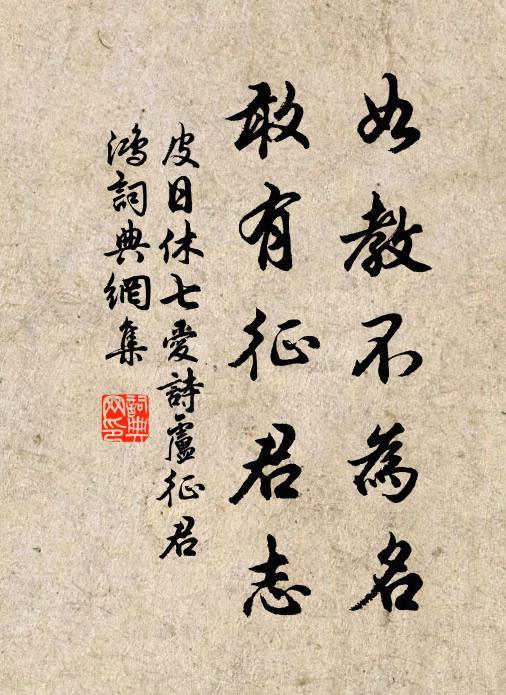 如教不為名
敢有征君志
皮日休七愛詩盧征君
鴻詞典網集
詞典網印